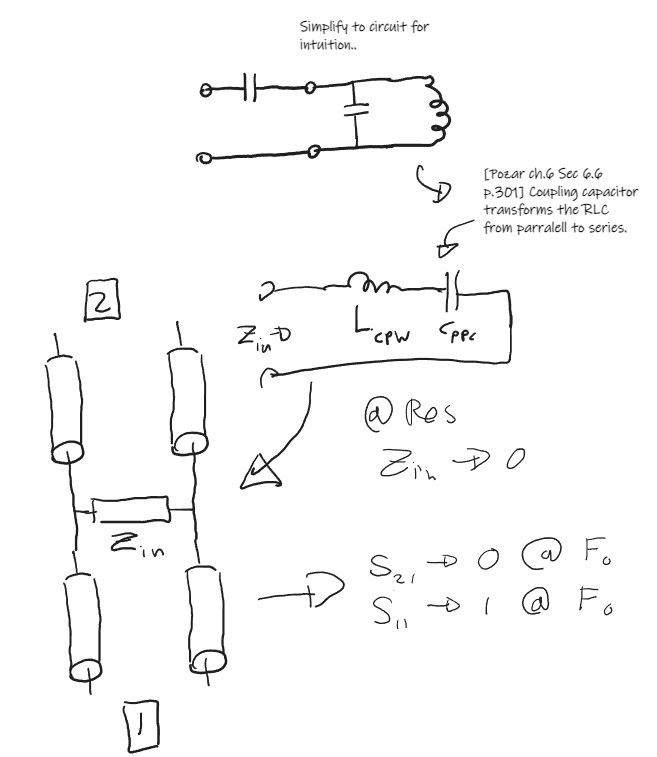 Simplify to circuit for
intuition..
[Pozar ch.6 Sec 6.6
p.301] Coupling capacitor
transforms the RLC
from parralell to series.
2
Zin
LCPW
CPPC
@ Res
Zin → 0
Zin
S21 → 0 @ F0
S11 → 1 @ F0
1